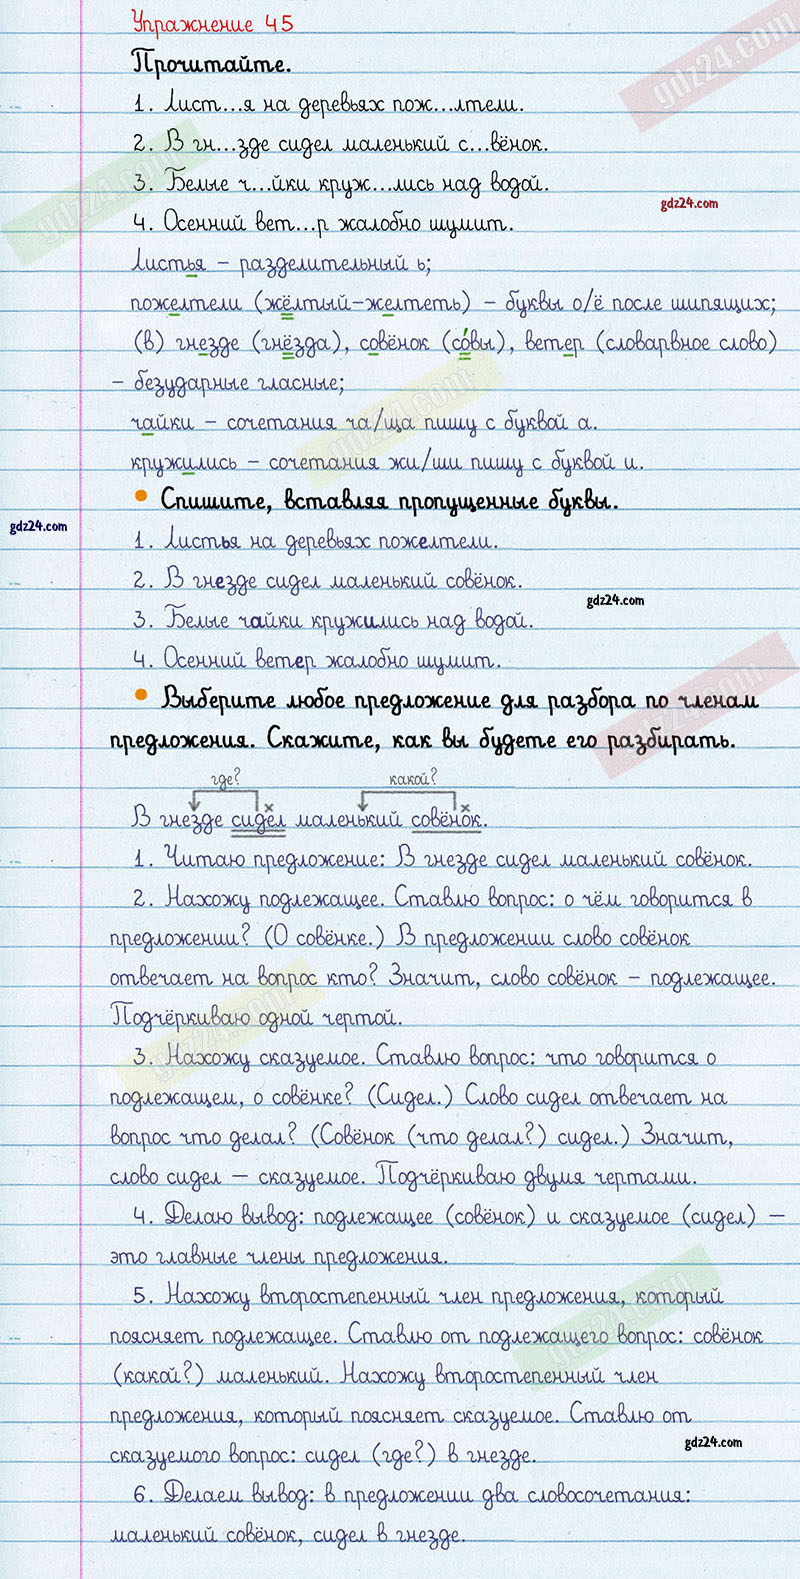 Упражнение 45
gdz24.com
Прочитайте.
1. Лист...я на деревьях пож...лтели.
2. В гн...зде сидел маленький с...вёнок.
gdz24.com
3. Белые ч...йки круж...лись над водой.
gdz24.com
4. Осенний вет...р жалобно шумит.
Листья – разделительный ь;
пожелтели (жёлтый–желтеть) – буквы о/ё после шипящих;
(в) гнезде (гнёзда), совёнок (со́вы), ветер (словарвное слово)
– безударные гласные;
gdz24.com
чайки – сочетания ча/ща пишу с буквой а.
кружились – сочетания жи/ши пишу с буквой и.
• Спишите, вставляя пропущенные буквы.
gdz24.com
1. Листья на деревьях пожелтели.
2. В гнезде сидел маленький совёнок.
gdz24.com
3. Белые чайки кружились над водой.
4. Осенний ветер жалобно шумит.
• Выберите любое предложение для разбора по членам
предложения. Скажите, как вы будете его разбирать.
gdz24.com
где? какой?
х х
В гнезде сидел маленький совёнок.
1. Читаю предложение: В гнезде сидел маленький совёнок.
2. Нахожу подлежащее. Ставлю вопрос: о чём говорится в
предложении? (О совёнке.) В предложении слово совёнок
отвечает на вопрос кто? Значит, слово совёнок – подлежащее.
Подчёркиваю одной чертой.
gdz24.com
3. Нахожу сказуемое. Ставлю вопрос: что говорится о
подлежащем, о совёнке? (Сидел.) Слово сидел отвечает на
вопрос что делал? (Совёнок (что делал?) сидел.) Значит,
слово сидел — сказуемое. Подчёркиваю двумя чертами.
4. Делаю вывод: подлежащее (совёнок) и сказуемое (сидел) —
это главные члены предложения.
5. Нахожу второстепенный член предложения, который
поясняет подлежащее. Ставлю от подлежащего вопрос: совёнок
gdz24.com
(какой?) маленький. Нахожу второстепенный член
предложения, который поясняет сказуемое. Ставлю от
сказуемого вопрос: сидел (где?) в гнезде.
gdz24.com
6. Делаем вывод: в предложении два словосочетания:
маленький совёнок, сидел в гнезде.